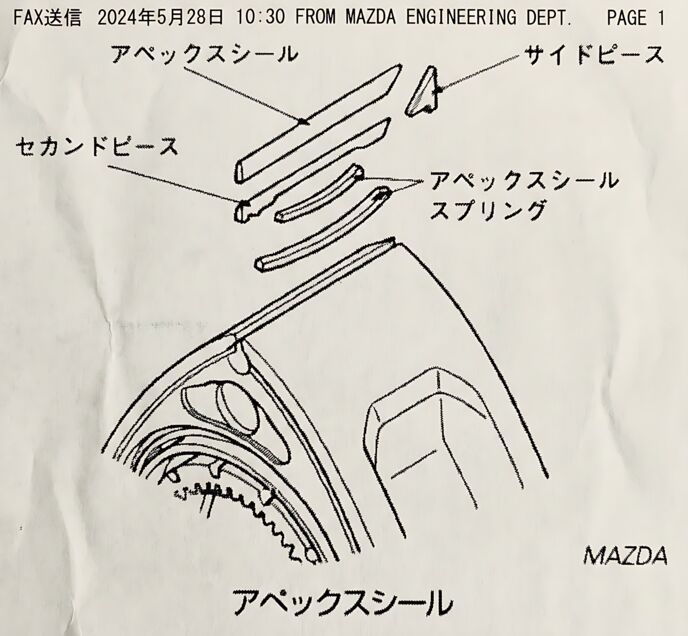 FAX送信 2024年5月28日 10:30 FROM MAZDA ENGINEERING DEPT. PAGE 1
アペックスシール
サイドピース
セカンドピース
アペックスシール
スプリング
MAZDA
アペックスシール